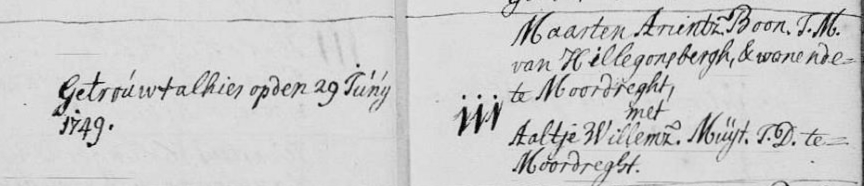 Getroúwt alhier op den 29 Júnÿ
1749.
iii
Maarten Arientz. Boon. J. M.
van Hillegonsbergh, & wonende=
te Moordreght,
met
Aaltje Willemz. Muÿt. J. D. te=
Moordreght.